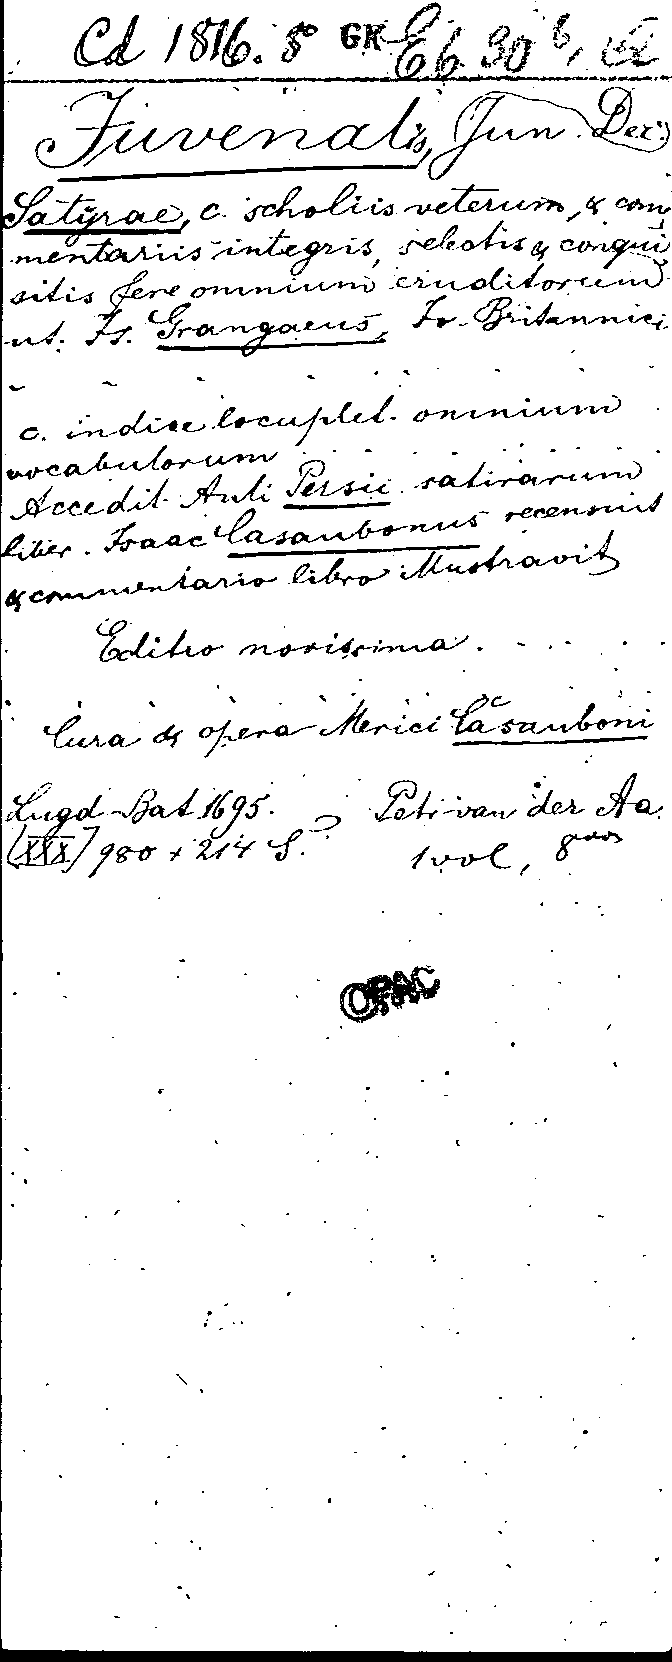 Cd 1816. 8° GR Eb 30 b,
Juvenalis, Jun. Dec:
Satyrae, c. scholiis veterum, & com
mentariis integris, selectis & conqui
sitis fere omnium eruditorum
ut. Is. Grangaeus, Io. Britannici
c. indice locuplet. omnium
vocabulorum
Accedit Auli Persii satirarum
liber. Isaac Casaubonus recensuit
& commentario libro illustravit
Editio novissima. . . . .
Cura & opera Merici Casauboni
Lugd-Bat 1695. Petr van der Aa.
[XXX] 980 + 214 S. 1 vol, 8vo
OPAC